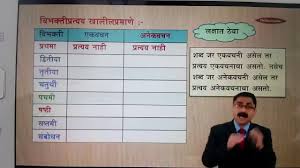 विभक्तीप्रत्यय खालीलप्रमाणे :-
लक्षात ठेवा
विभक्ती एकवचन अनेकवचन
प्रथमा प्रत्यय नाही प्रत्यय नाही
द्वितीया
तृतीया
चतुर्थी
पंचमी
षष्ठी
सप्तमी
संबोधन
शब्द जर एकवचनी असेल तर
प्रत्यय एकवचनाचा असतो. तसेच
शब्द जर अनेकवचनी असेल तर
प्रत्यय अनेकवचनाचा असतो.